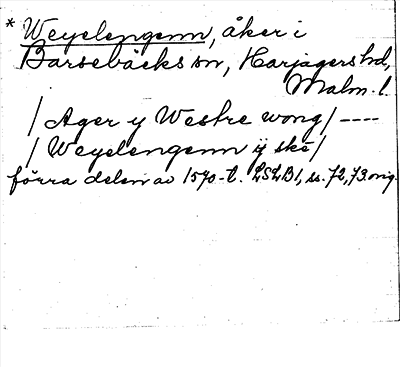 * Weyelengenn, åker i
Barsebäcks sn, Harjagers hd,
Malm. l.
/ Ager y Westre wong / ----
/ Weyelengenn ij ske /
förra delen av 1570-t. LSLB1, ss. 72, 73. orig.